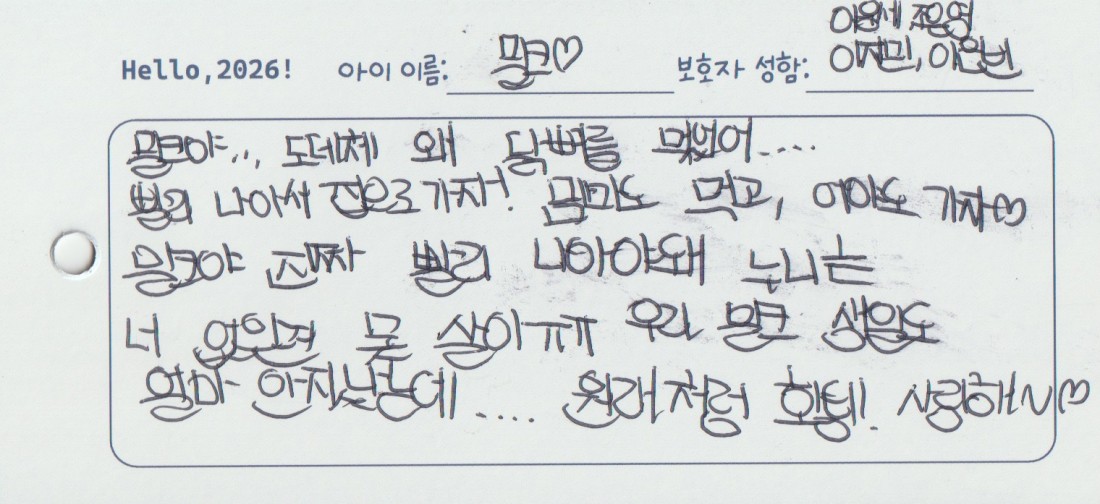 이원세 조은영
Hello,2026! 아이 이름: 밀크♡ 보호자 성함: 이재민, 이원빈
밀크야... 도데체 왜 닭뼈를 먹었어....
빨리 나아서 집으로 가자! 밤미도 먹고, 어야도 가자♡
밀크야 진짜 빨리 나아야돼 누나는
너 없인 못 살아ㅠㅠ 우리 밀크 생일도
얼마 안지났는데.... 원래처럼 힘내! 사랑해~♡